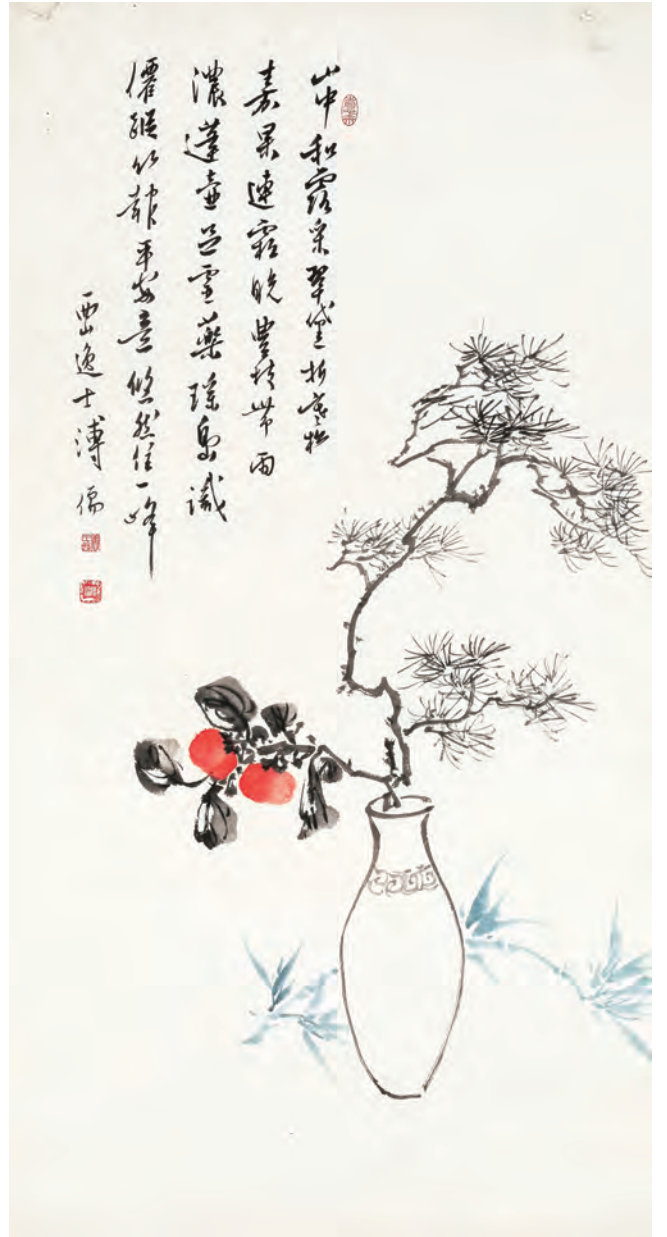 山中和露采翠黛折寒松
嘉果連霜晚豐枝帶雨
濃蓬壺靈藥瑤島識
僊蹤竹報平安意悠然住一峰
西山逸士溥儒